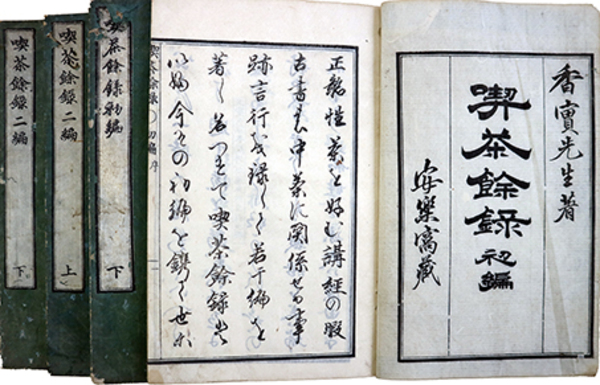 香寶先生著
喫茶餘録 初編
安樂窩藏
正懿性茶を好む講經の暇
古書の中茶に関係せる事
跡言行を録して若干編を
著し名つけて喫茶餘録と
今その初編を鐫して世に
喫茶餘録 初編 序
喫茶餘録初編 下
喫茶餘録二編 上
喫茶餘録二編 下